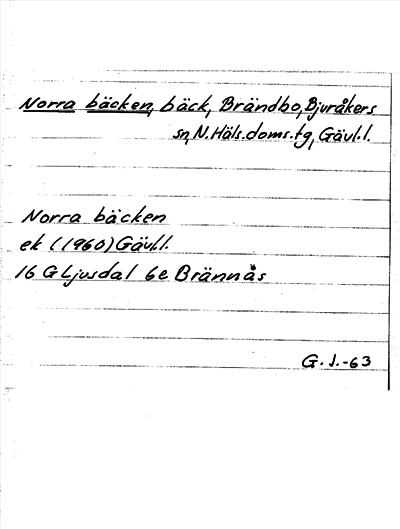 Norra bäcken, bäck, Brändbo, Bjuråkers
sn, N. Häls. doms. tg, Gävl. l.
Norra bäcken
ek (1960) Gävl. l.
16 G Ljusdal 6e Brännås
G. J. -63